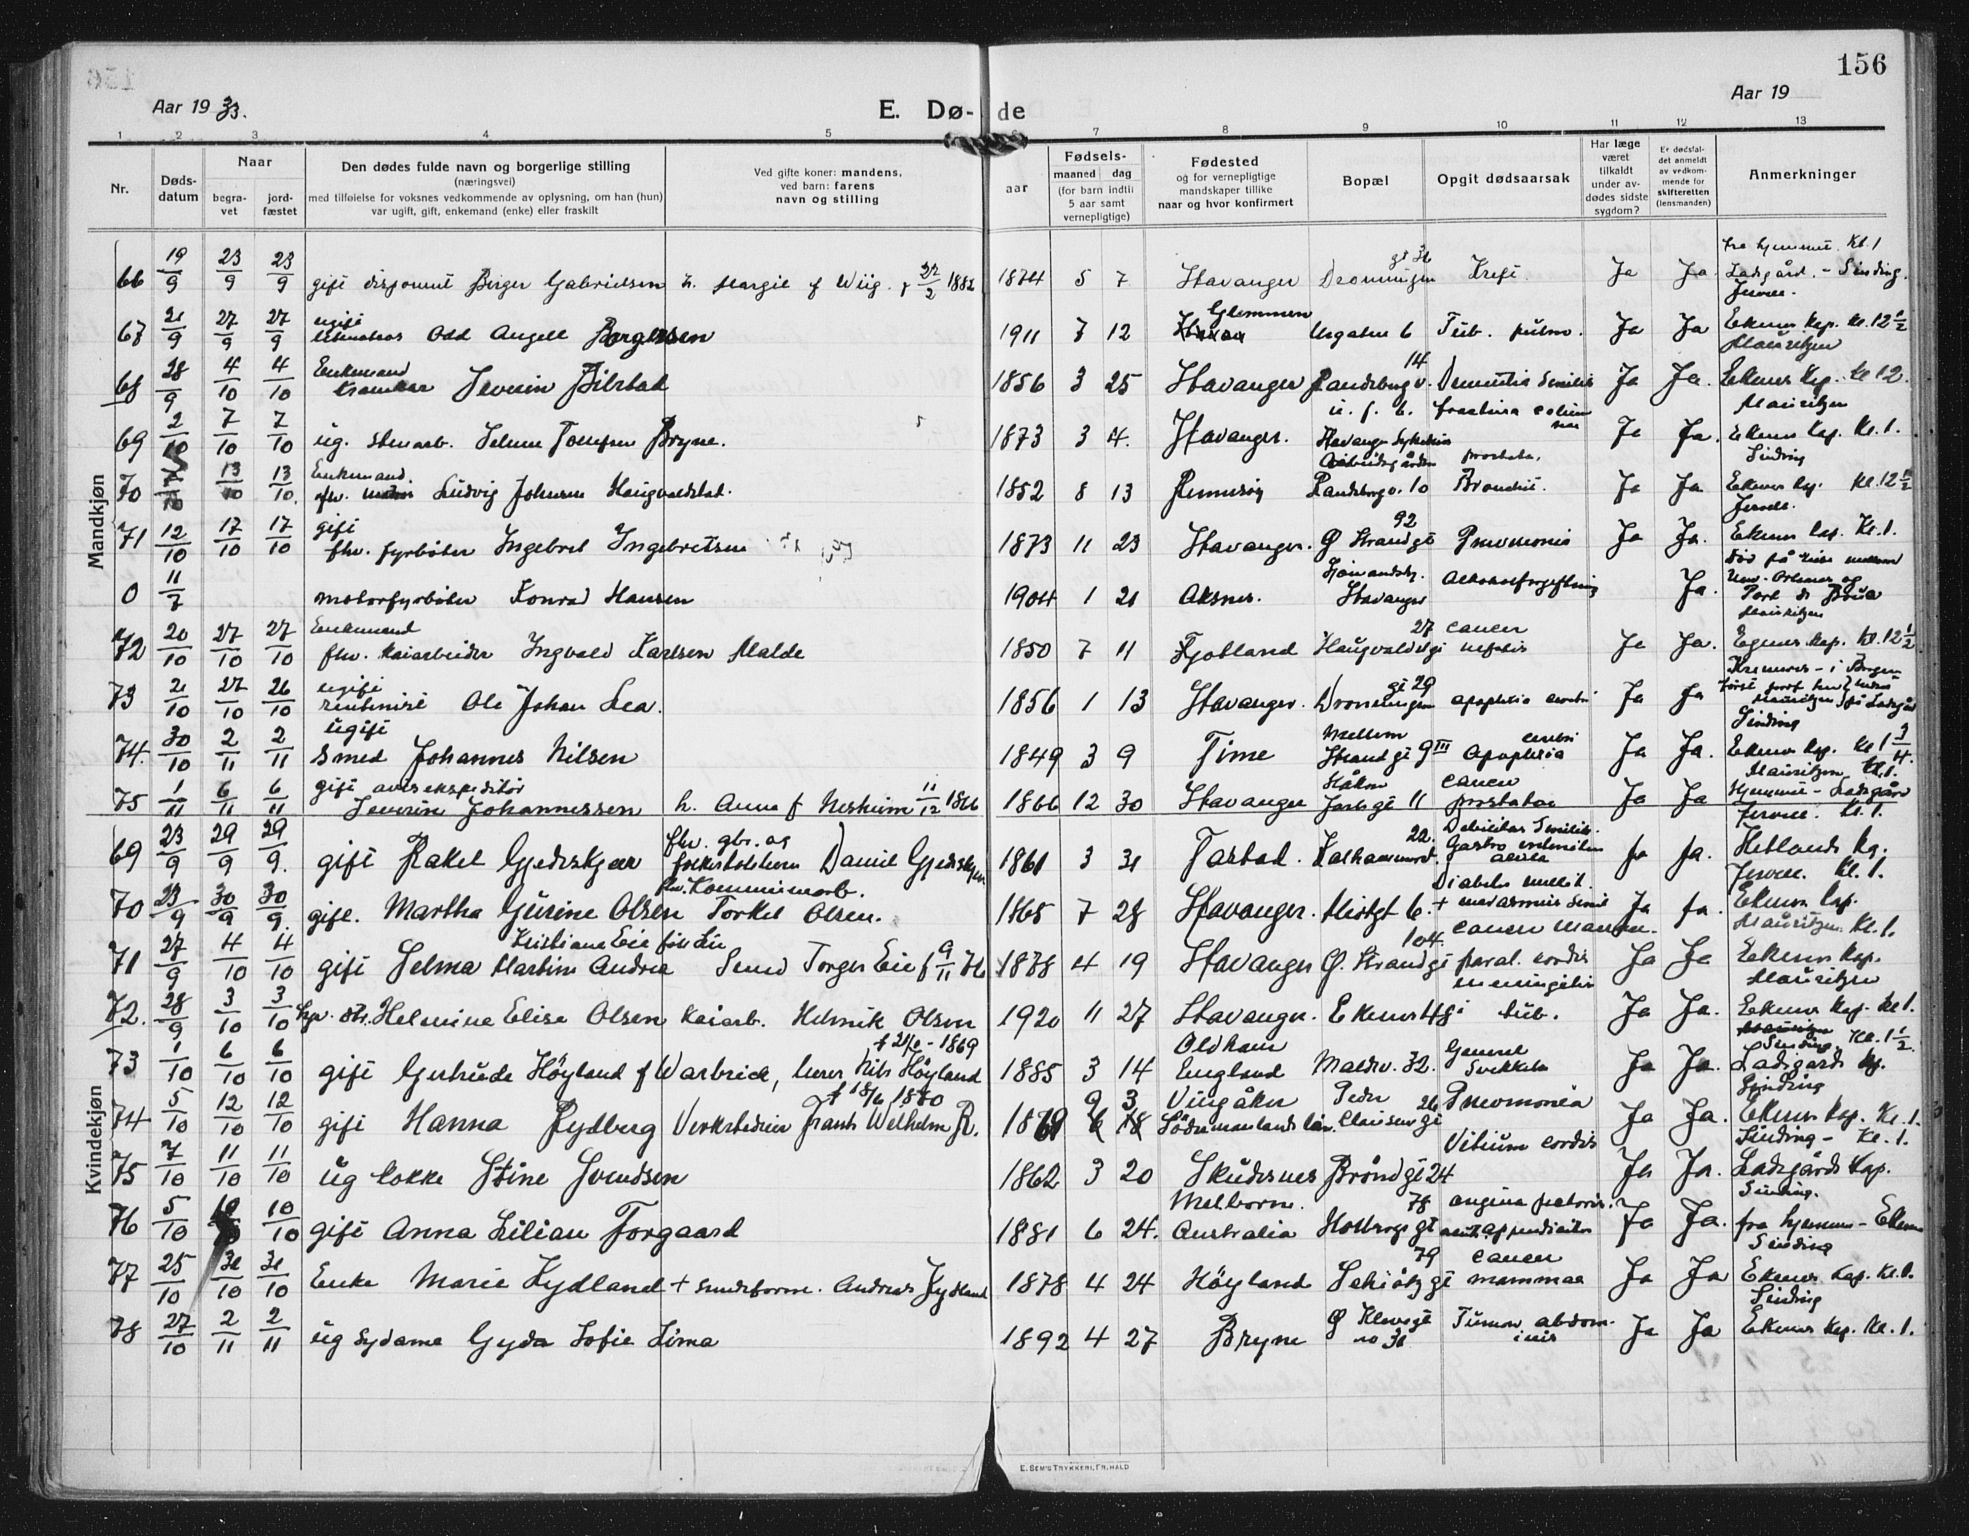 156
Aar 19 33.
E. Dø-de
Aar 19
1 2 3 4 5 6 7 8 9 10 11 12 13
Nr.
Døds-datum
Naar
begra-vet
jord-fæstet
Den dødes fulde navn og borgerlige stilling
(næringsvei)
med tilføielse for voksnes vedkommende av oplysning, om han (hun)
var ugift, gift, enkemand (enke) eller fraskilt
Ved gifte koner: mandens,
ved barn: farens
navn og stilling
Fødsels-
aar
maaned dag
(for barn indtil
5 aar samt
vernepligtige)
Fødested
og for vernepligtige
mandskaper tillike
naar og hvor konfirmert
Bopæl
Opgit dødsaarsak
Har læge
været
tilkaldt
under av-
dødes sidste
sygdom?
Er dødsfal-
det anmeldt
av vedkom-
mende for
skifteretten
(lensmanden)
Anmerkninger
Mandkjøn
66 19/9 23/9 23/9 gift disponent Birger Gabrielsen h. Margit f Wiig. f 22/2 1882 1874 5 7 Stavanger Dronningen gt 36 Kreft. Ja Ja fra hjemmet Kl. 1 Ladegård. - Sinding. Jersee.
67 21/9 27/9 27/9 ugift Odd Angell Borgersen 1911 7 12 Glemmen Urgaten 6 Tub. pulm. Ja Ja Ekenes Kap. Kl. 12 1/2 Mauritzen
68 28/9 4/10 4/10 Enkemand Severin Bilstad 1856 3 25 Stavanger Randsberg v. 14 Dementia Senilis Ja Ja. Ekenes Kap. Kl 12. Mauritzen
69 2/10 7/10 7/10 ug. stenarb. Selmer Tomesen Bryne. 1873 3 4. Stavanger. Stavanger Sykehus fractura colum nae Ja Ja. Ekenes Kap. Kl. 1. Sinding
70 7/10 13/10 13/10 Enkemand. fhv. Ludvig Johnsen Haugvaldstad. 1852 8 13 Rennesöy Arbeidsgården Randsberg v. 10 prostata, Bronchit. Ja Ja Ekenes Kap. Kl. 12 1/2 Jersee.
71 12/10 17/10 17/10 gift fhv. fyrböter Ingebret Ingebretsen 1873 11 23 Stavanger. Ø Strandgt 92 Pnevmonia Ja Ja. Ekenes Kap. Kl. 1.
0 11/7 motorfyrböter Konrad Hansen 1904 1 21 Aksnes. Stavanger Alkoholforgiftning Ja. Död på reise mellem New-Orleans og Port de Bouc Mauritzen
72 20/10 27/10 27/10 Enkemand fhv. Kaiarbeider Ingvald Karlsen Malde 1850 7 11 Fjotland Haugvaldst gt 27 cancer Ja Ja. Egenes Kap. Kl. 12 1/2
73 21/10 27/10 26/10 ugift rentenist Ole Johan Lea. 1856 1 13 Stavanger. Dronningen gt 29 apoplexia cerebri Ja Ja Kremeres - i Bergen
74. 30/10 2/11 2/11 ugift smed Johannes Nilsen 1849 3 9 Time Mellem Strandgt 9 III Apoplexia cerebri Ja Ja. Sinding Ekenes Kap. Kl 1 3/4. Mauritzen
75 1/11 6/11 6/11 gift avisekspeditör Severin Johannessen h. Anne f Nesheim 11/12 1866 1866 12 30 Stavanger Håkon Jarls gt 11 cancer prostatae Ja Ja Kl. 1. Hjemmet - Ladegård Jersee. Kl. 1.
Kvindekjøn
69 23/9 29/9 29/9. gift Rakel Gjedrskjær fhv. gbr. og Daniel Gjedrskjær 1861 3 31 Tastad. Kalhammerv. 22. Debilitas Senilis. Gastro enteritis acuta Ja Ja. Hetlands Kg. Jersee. Kl. 1.
70 23/9 30/9 30/9 gift. Martha Gurine Olsen fhv. Kommunearb. Torkel Olsen. 1865 7 28 Stavanger. Mostgt 6. Diabetes mellit. + marasmus senil Ja Ja. Ekenes Kap. Mauritzen Kl. 1.
71 27/9 4/10 4/10 gift Selma Martine Andrea Kristiane Eie föd Lie Smed Torger Eie f 9/11 76 1878 4 19 Stavanger Ø. Strandgt 104. cancer mammae. paral. cordis Ja Ja Ekenes Kap. Mauritzen
72. 28/9 3/10 3/10 Helmine Elise Olsen Kaiarb. Henrik Olsen 1920 11 27 Stavanger. Ekenes 48 meningitis tub. Ja Ja. Ekenes Kap. Kl 1. Sinding
73 1/10 6/10 6/10 gift Gertrude Höyland f Warbrick, lærer Nils Höyland f 21/6 - 1869 1885 3 14 Oldham England Maldev. 32. Generel Svekkelse Ja Ja Kl. 1 1/2. Ladegårds Kp. Sinding
74 5/10 12/10 12/10 gift Hanna Rydberg Verkstedeier Frants Wilhelm R. f 18/6 1880 1879 9 3 Vingåker Södermanlands län. Peder Clausens gt 26 Pnevmonia Ja Ja. Ekenes Kap. Kl. 1. Sinding - Kl. 1.
75 7/10 11/10 11/10 ug kokke Stine Svendsen 1862 3 20 Skudesnes Bröndgt 24 Vitium cordis Ja Ja. Ladegårds Kap. Sinding.
76 5/10 10/10 10/10 gift Anna Lilian Torgaard 1881 6 24. Melborn. Australia Holbergs gt 78 angina pectoris. acut appendicitis Ja Ja. fra hjemmet - Ekenes Sinding
77 25/10 31/10 31/10 Enke Marie Kydland + smedeform. Andreas Kydland 1878 4 24 Höyland Schiötz gt 79 cancer mammae Ja Ja Ekenes Kap. Kl. 1. Sinding
78 27/10 2/11 2/11 ug Sydame Gyda Sofie Lima 1892 4 27 Bryne Ø Klevegt no 31 Tumor abdom-inis Ja Ja Ekenes Kap. Kl. 1.
E. SEM'S TRYKKERI, FR.HALD